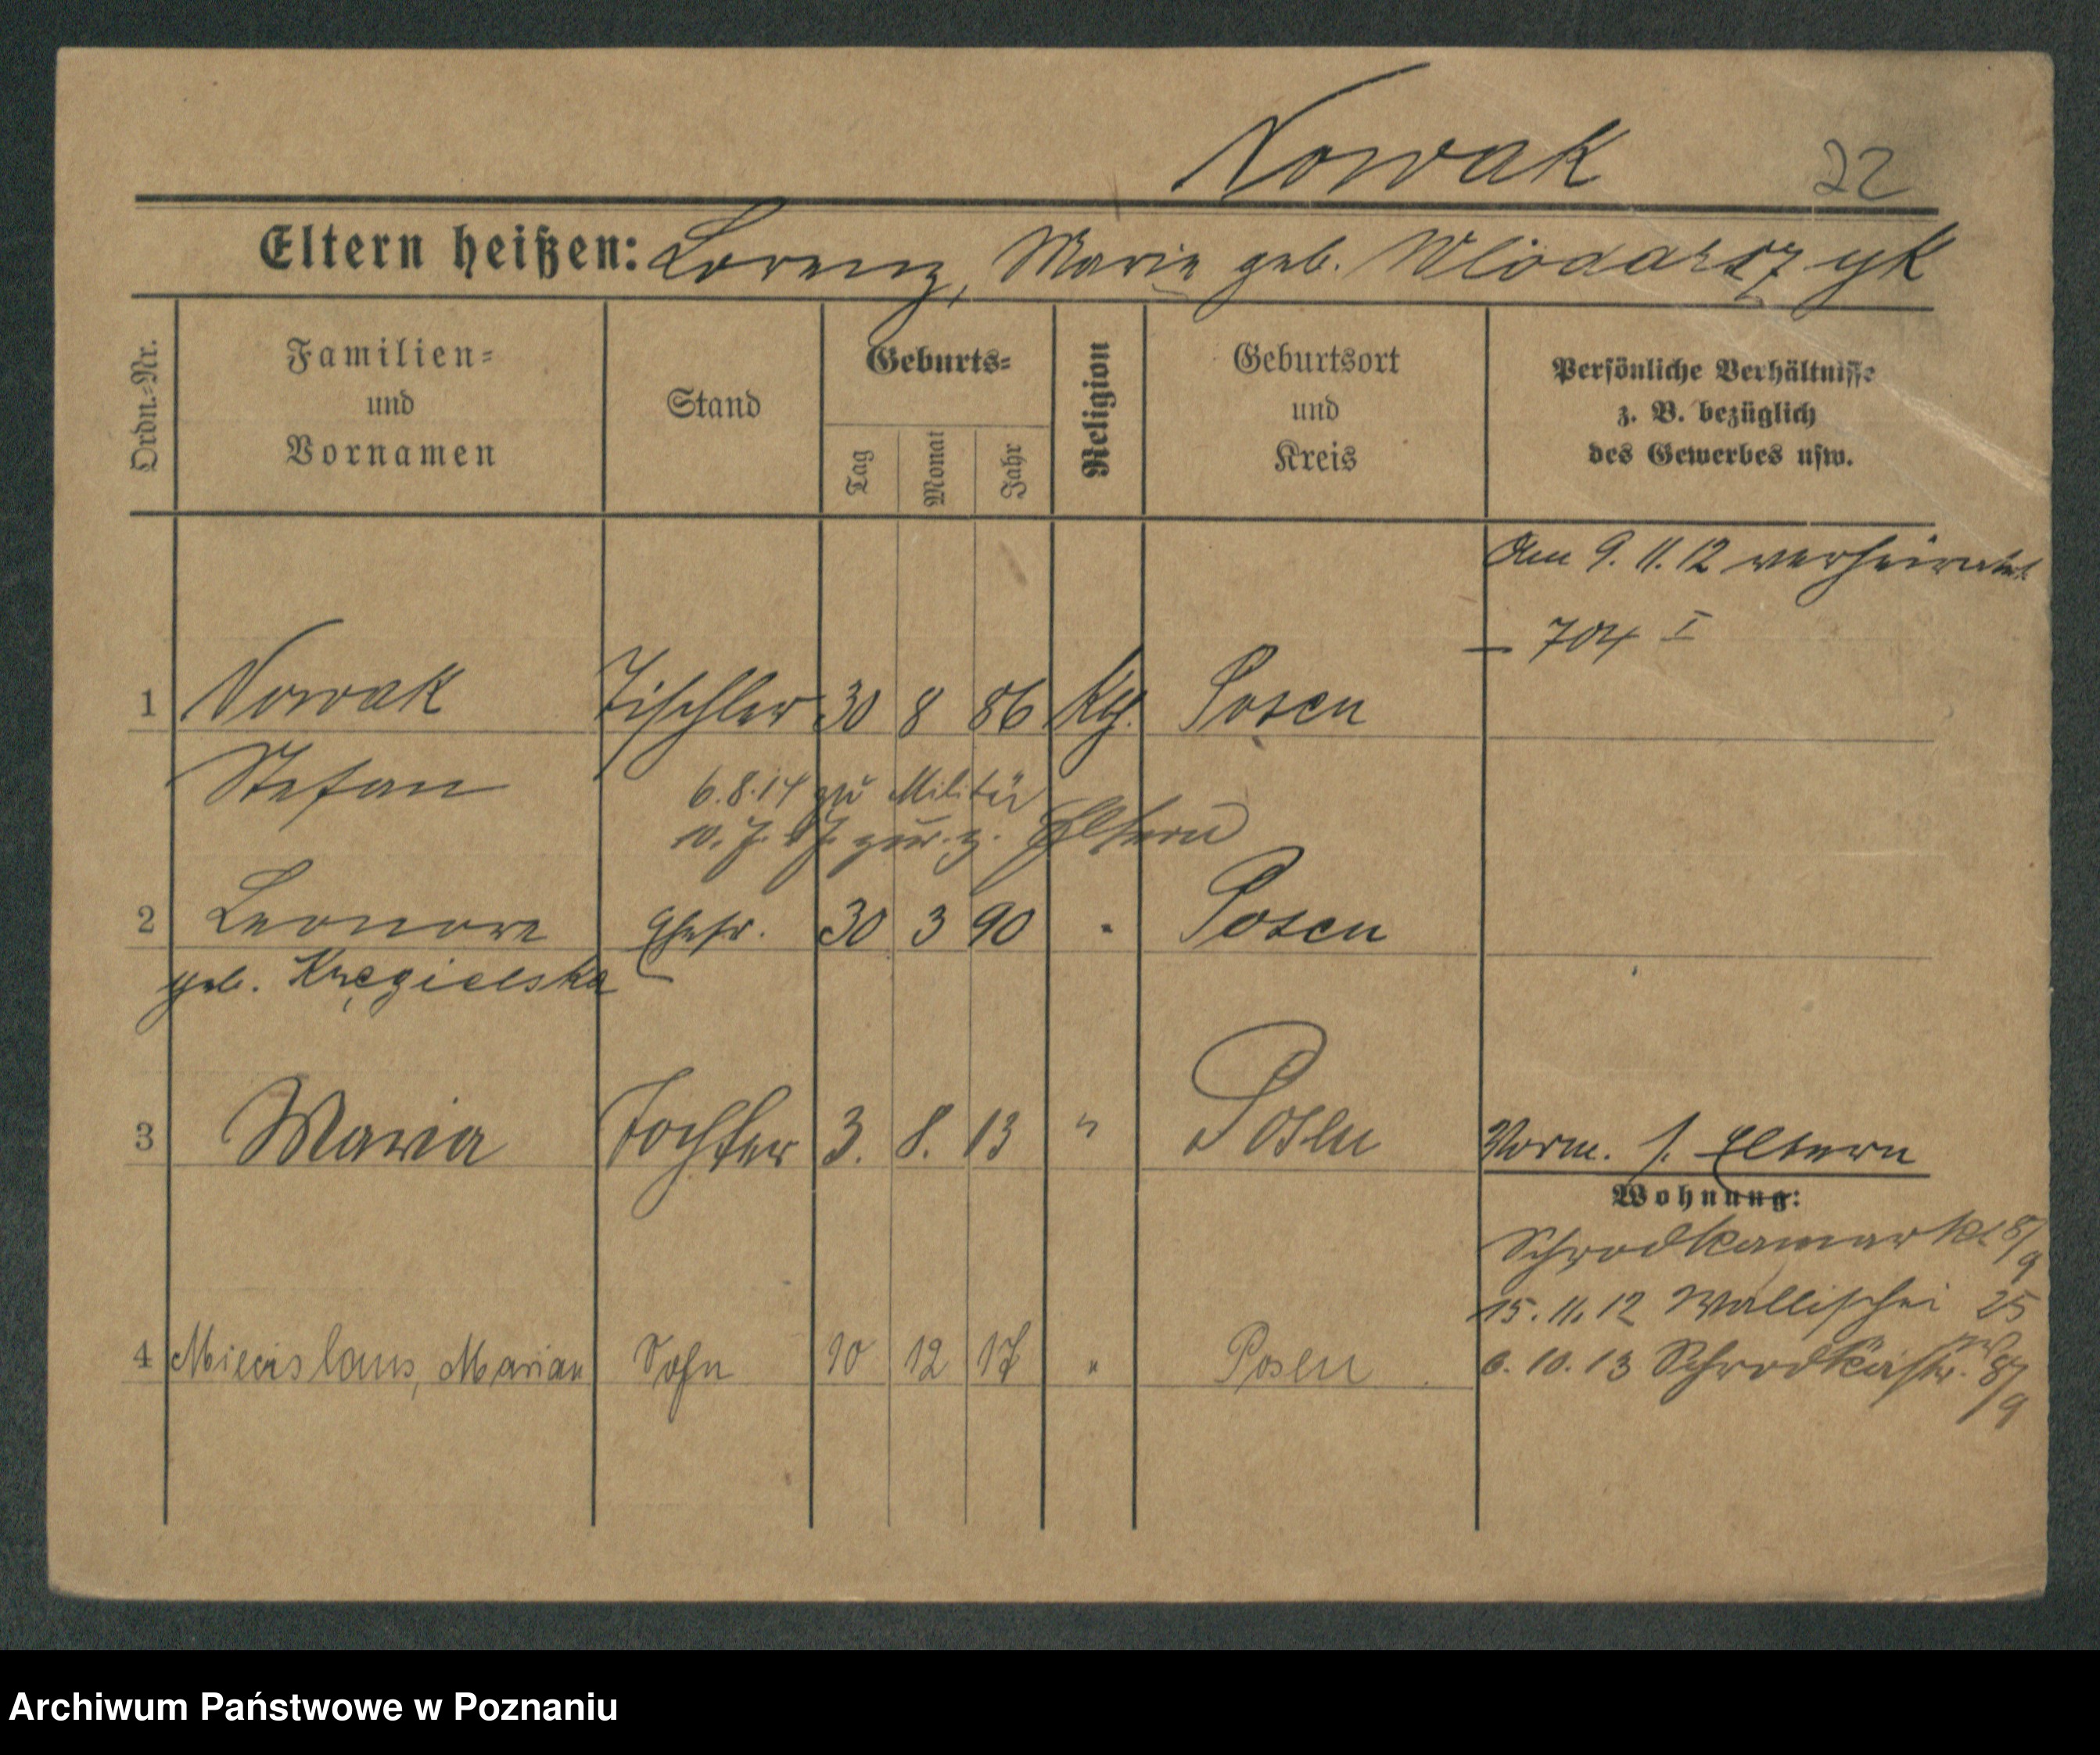 Nowak 22
Eltern heißen: Lorenz, Marie geb. Wlodarszyk
Ordn.=Nr.
Familien=
und
Vornamen
Stand
Geburts=
Tag
Monat
Jahr
Religion
Geburtsort
und
Kreis
Persönliche Verhältnisse
z. B. bezüglich
des Gewerbes usw.
Am 9. 11. 12 verheiratet
– 704 I
1 Nowak Tischler 30 8 86 Kth. Posen
Stefan
6.8.14 zu Militär
zur. z. Eltern
2 Leonore Ehefr. 30 3 90 " Posen
geb. Kręgielska
3 Maria Tochter 3. 8. 13 " Posen
Vorm. s. Eltern
Wohnung:
Schrodkamarkt 8/9
15. 11. 12 Wallischei 25
4 Miecislaus, Marian Sohn 10 12 17 " Posen
6. 10. 13 Schrodka 8/9
Archiwum Państwowe w Poznaniu